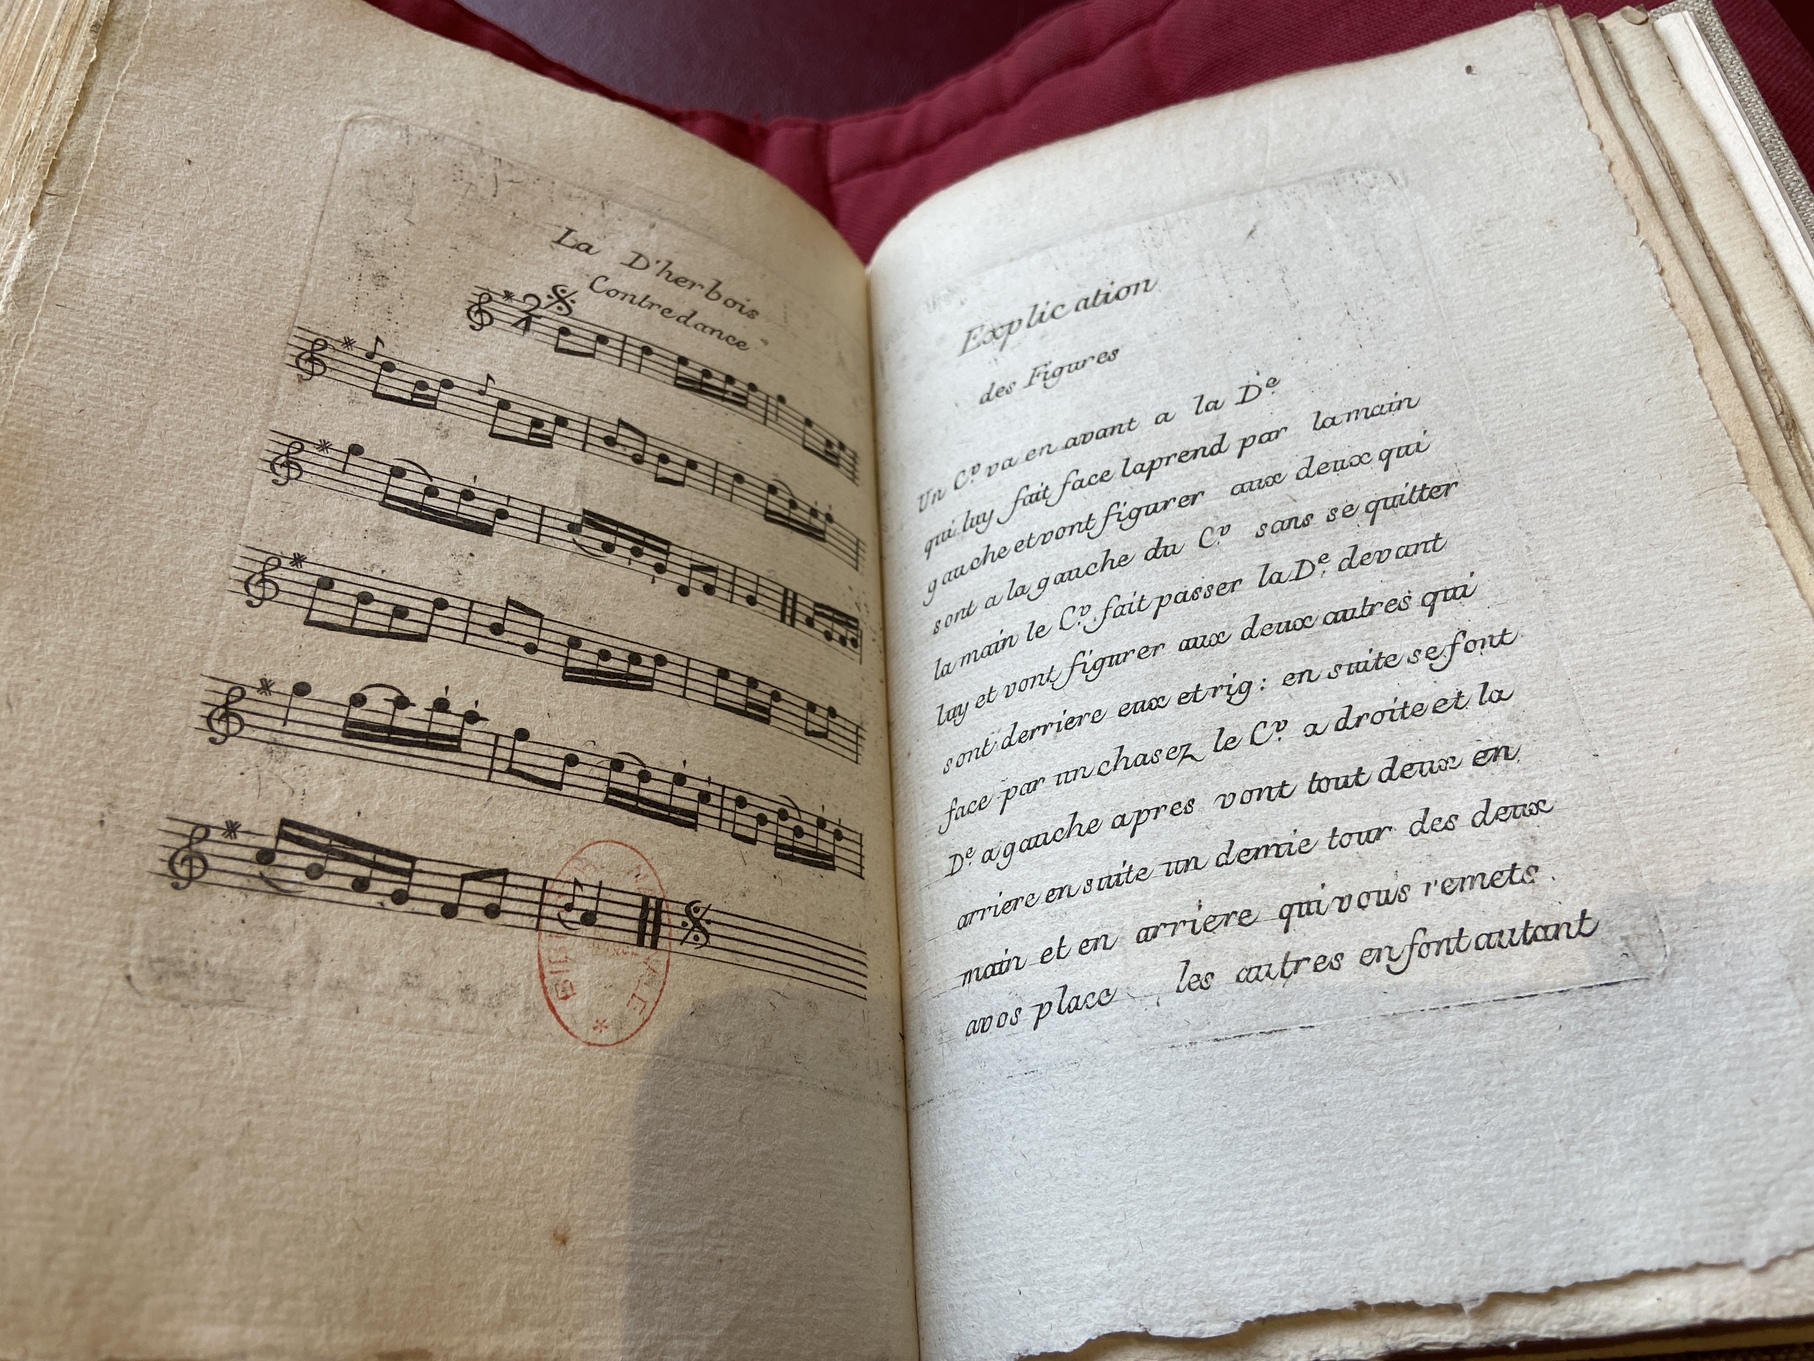 La D'herbois
Contredance
2
4
Explication
des Figures
Un C.r va en avant a la D.e
qui luy fait face laprend par la main
gauche et vont figurer aux deux qui
sont a la gauche du C.r sans se quitter
la main le C.r fait passer la D.e devant
luy et vont figurer aux deux autres qui
sont derriere eux et rig: en suite se font
face par un chasez le C.r a droite et la
D.e a gauche apres vont tout deux en
arriere en suite un demie tour des deux
main et en arriere qui vous remets.
avos place les autres en font autant